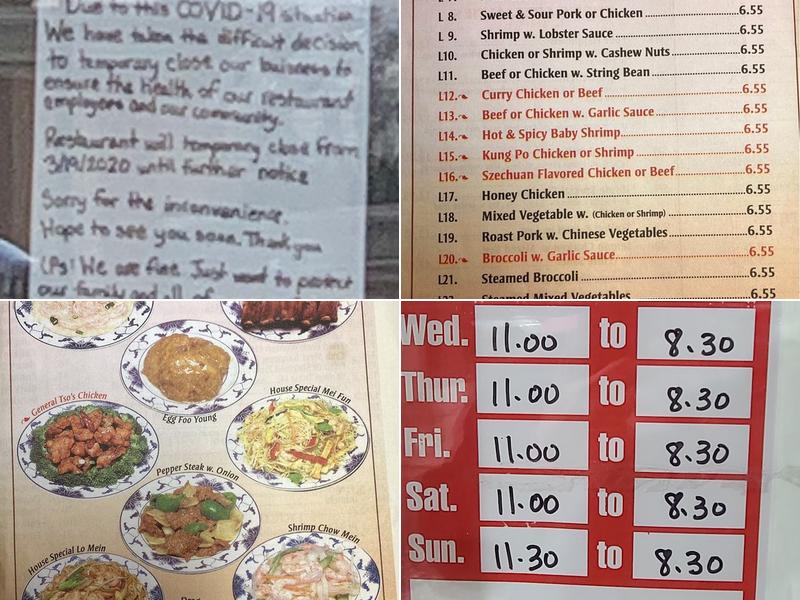 Due to this COVID-19 situation
We have taken the difficult decision
to temporary close our business to
ensure the health of our restaurant
employees and our community.
Restaurant will temporary close from
3/19/2020 until further notice
Sorry for the inconvenience.
Hope to see you soon. Thank you
(Ps! We are fine. Just want to protect
our family and all of
L 8. Sweet & Sour Pork or Chicken 6.55
L 9. Shrimp w. Lobster Sauce 6.55
L10. Chicken or Shrimp w. Cashew Nuts 6.55
L11. Beef or Chicken w. String Bean 6.55
L12. Curry Chicken or Beef 6.55
L13. Beef or Chicken w. Garlic Sauce 6.55
L14. Hot & Spicy Baby Shrimp 6.55
L15. Kung Po Chicken or Shrimp 6.55
L16. Szechuan Flavored Chicken or Beef 6.55
L17. Honey Chicken 6.55
L18. Mixed Vegetable w. (Chicken or Shrimp) 6.55
L19. Roast Pork w. Chinese Vegetables 6.55
L20. Broccoli w. Garlic Sauce 6.55
L21. Steamed Broccoli 6.55
Steamed Mixed Vegetables 6.55
General Tso's Chicken
Egg Foo Young
House Special Mei Fun
Pepper Steak w. Onion
House Special Lo Mein
Shrimp Chow Mein
Wed. 11.00 to 8.30
Thur. 11.00 to 8.30
Fri. 11.00 to 8.30
Sat. 11.00 to 8.30
Sun. 11.30 to 8.30